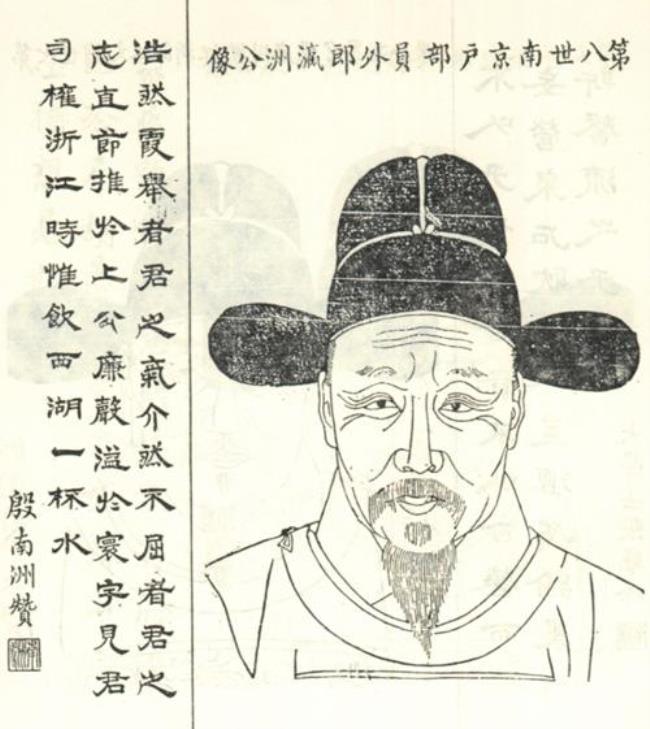 第八世南京戸部員外郎瀛洲公像
浩然霞舉者君之氣介然不屈者君之
志直節推於上公廉聲溢於寰宇見君
司榷浙江時惟飲西湖一杯水
殷南洲贊